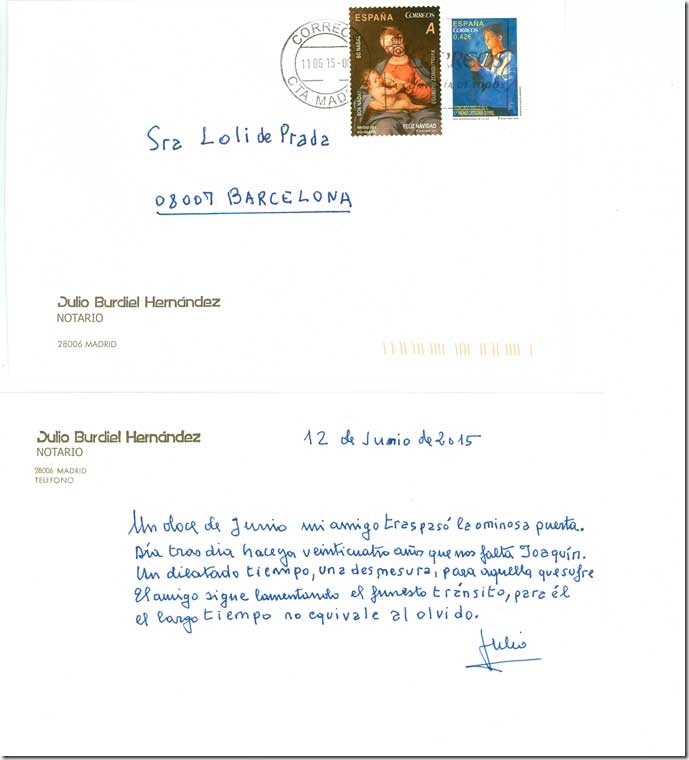 CORREOS
11 06 15-
CTA MADRID
ESPAÑA Correos
A
BON NADAL
BO NADAL
FELIZ NAVIDAD
ESPAÑA
Correos
0,42€
Sra Loli de Prada
08007 BARCELONA
Julio Burdiel Hernández
NOTARIO
28006 MADRID
Julio Burdiel Hernández
NOTARIO
28006 MADRID
TELEFONO
12 de Junio de 2015
Un doce de Junio mi amigo traspasó la ominosa puerta.
Día tras día hace ya veinticuatro años que nos falta Joaquín.
Un dilatado tiempo, una desmesura, para aquella que sufre
El amigo sigue lamentando el funesto tránsito, para él
el largo tiempo no equivale al olvido.
Julio